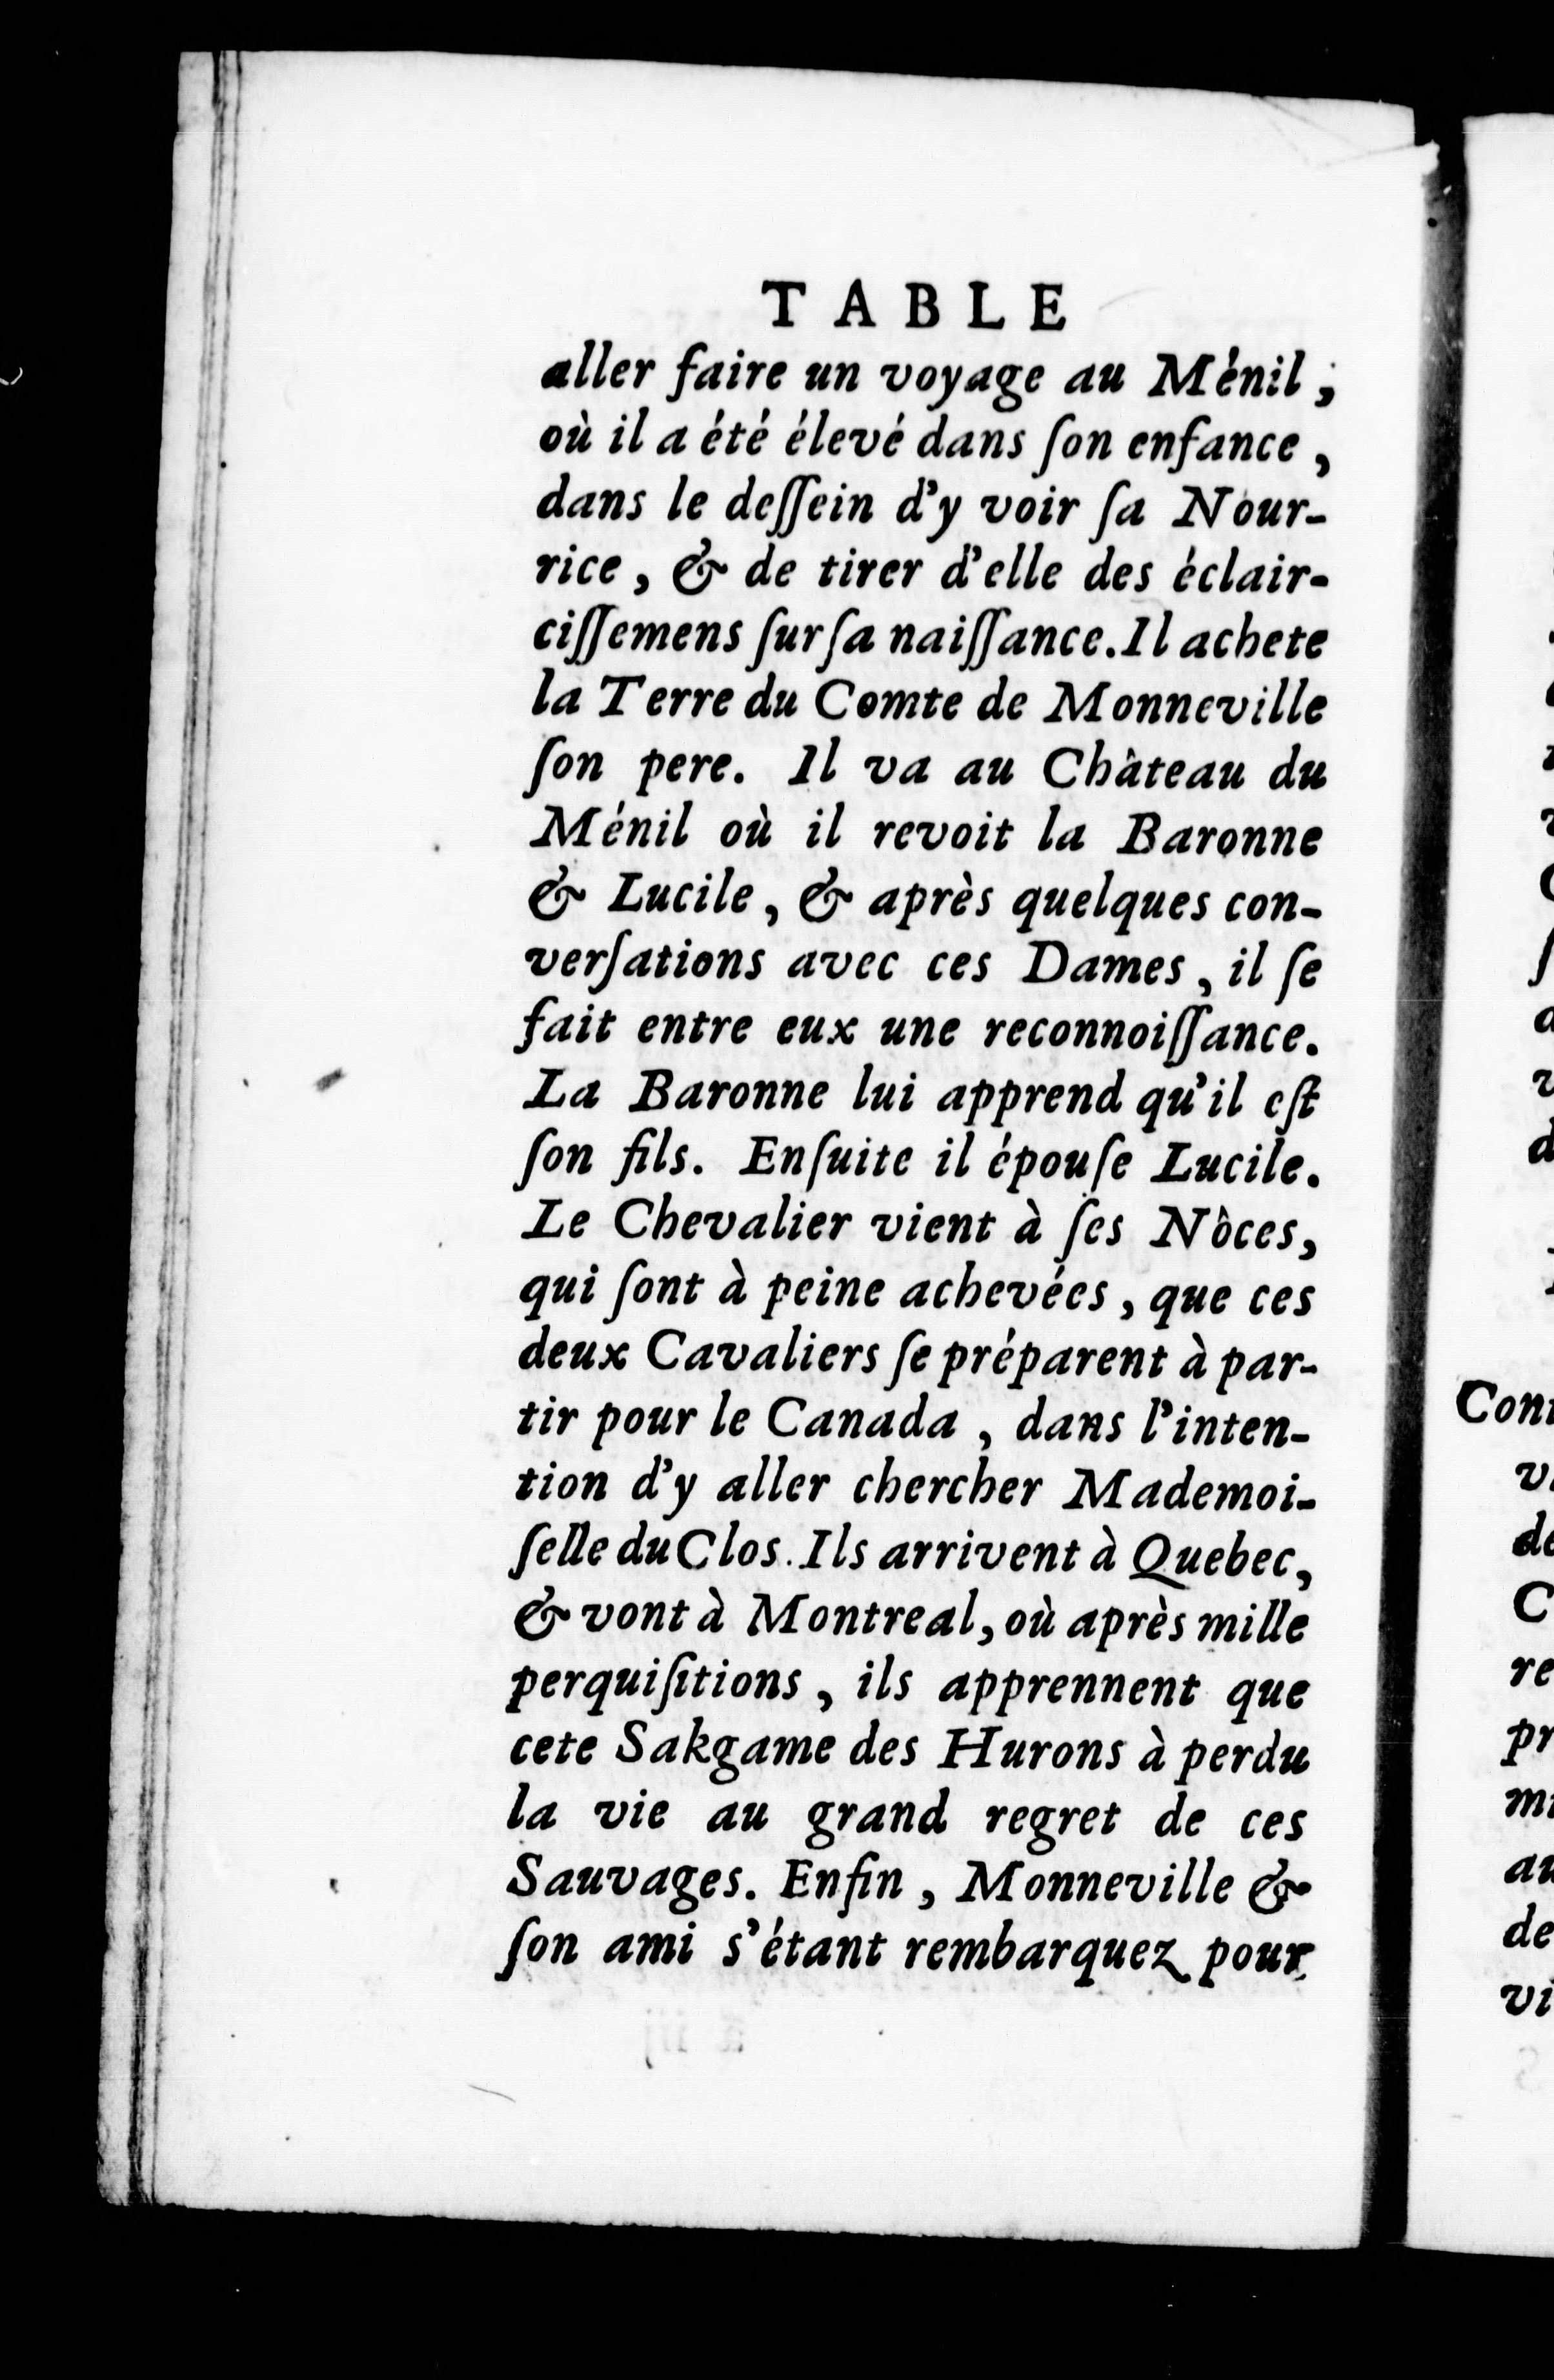 TABLE
aller faire un voyage au Ménil,
où il a été élevé dans ſon enfance,
dans le deſſein d'y voir ſa Nour-
rice, & de tirer d'elle des éclair-
ciſſemens ſur ſa naiſſance. Il achete
la Terre du Comte de Monneville
ſon pere. Il va au Château du
Ménil où il revoit la Baronne
& Lucile, & après quelques con-
verſations avec ces Dames, il ſe
fait entre eux une reconnoiſſance.
La Baronne lui apprend qu'il eſt
ſon fils. Enſuite il épouſe Lucile.
Le Chevalier vient à ſes Nôces,
qui ſont à peine achevées, que ces
deux Cavaliers ſe préparent à par-
tir pour le Canada, dans l'inten-
tion d'y aller chercher Mademoi-
ſelle du Clos. Ils arrivent à Quebec,
& vont à Montreal, où après mille
perquiſitions, ils apprennent que
cete Sakgame des Hurons à perdu
la vie au grand regret de ces
Sauvages. Enfin, Monneville &
ſon ami s'étant rembarquez pour